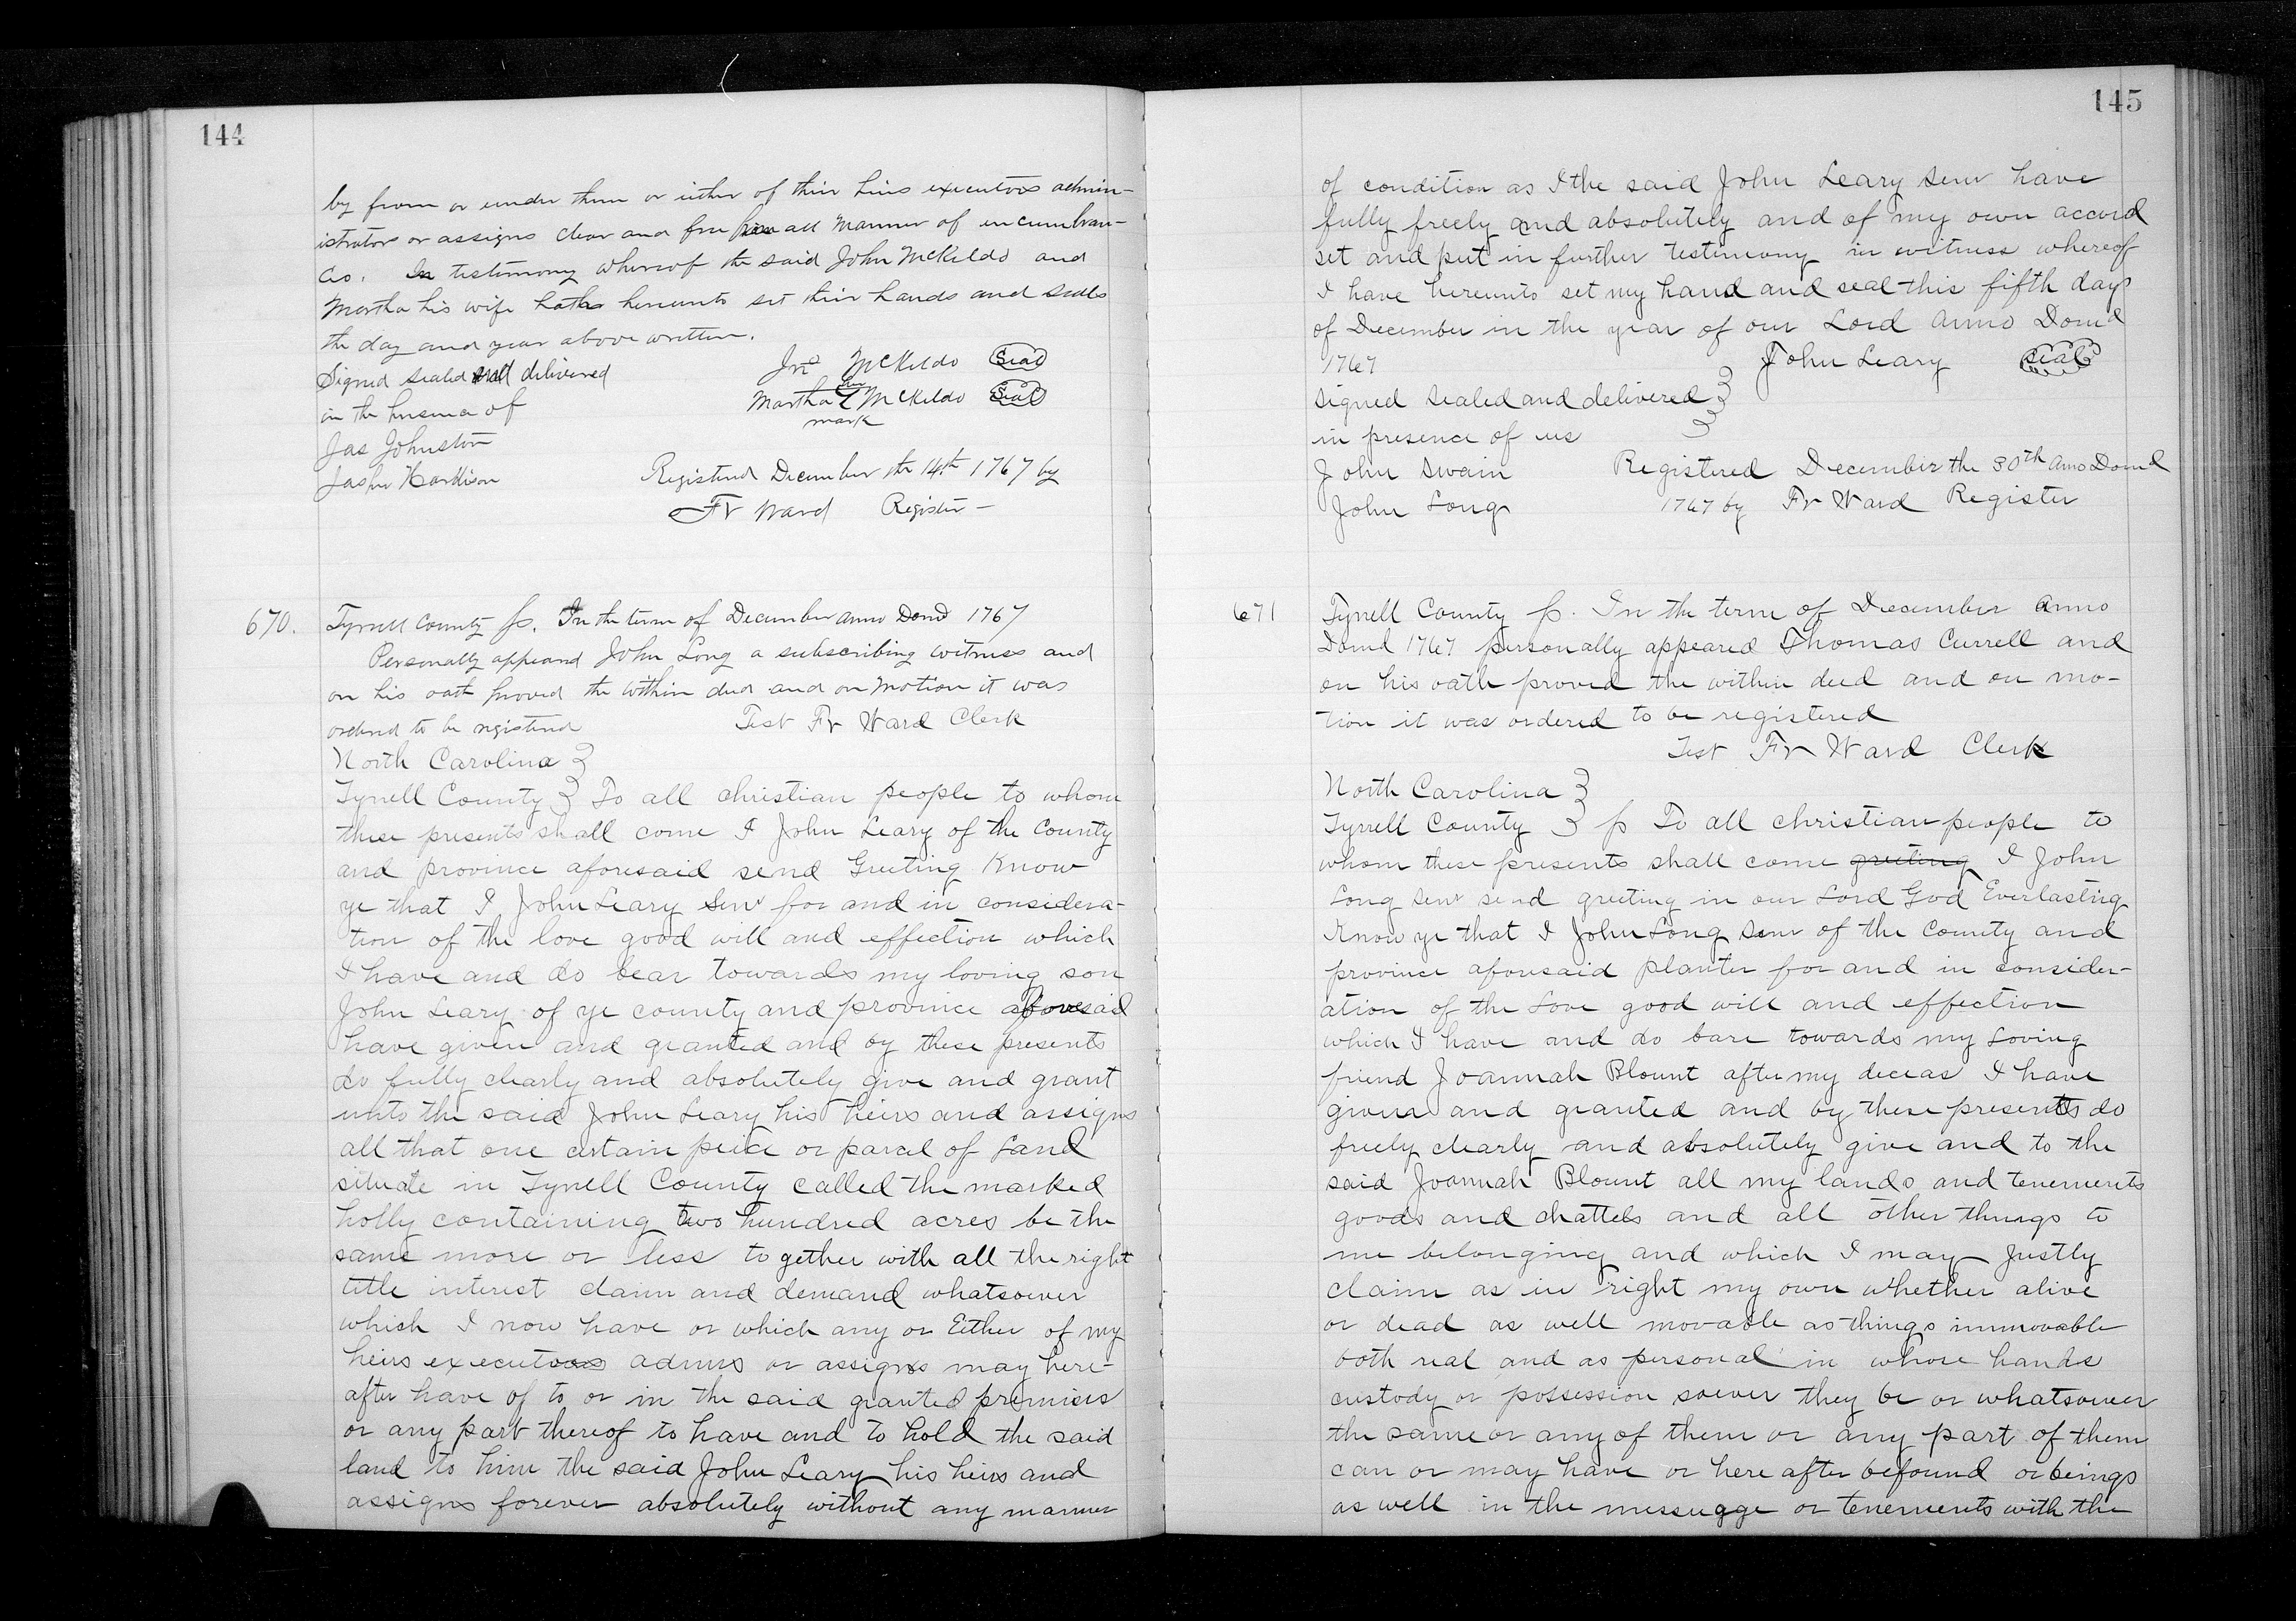 144
by from or under them or either of their heirs executors admin-
istrators or assigns clear and free from all manner of incumbran-
ces. In testimony whereof the said John McKildo and
Martha his wife hath hereunto set their hands and seals
the day and year above written.
Signed sealed and delivered Jno McKildo Seal
in the presence of Martha her mark McKildo Seal
Jas Johnston
Jasper Hardison Registered December the 14th 1767 by
Fr Ward Register
670. Tyrrell County ss. In the term of December anno Domd 1767
Personally appeared John Long a subscribing witness and
on his oath proved the within deed and on motion it was
ordered to be registered Test Fr Ward Clerk
North Carolina }
Tyrrell County } To all christian people to whom
these presents shall come I John Leary of the County
and province aforesaid send Greeting Know
ye that I John Leary Senr for and in considera-
tion of the love good will and effection which
I have and do bear towards my loving son
John Leary of ye county and province aforesaid
have given and granted and by these presents
do fully clearly and absolutely give and grant
unto the said John Leary his heirs and assigns
all that one certain peice or parcel of Land
situate in Tyrrell County called the marked
holly containing two hundred acres be the
same more or less together with all the right
title interest claim and demand whatsoever
which I now have or which any or Either of my
heirs executors admrs or assigns may here-
after have of to or in the said granted premises
or any part thereof to have and to hold the said
land to him the said John Leary his heirs and
assigns forever absolutely without any manner
145
of condition as I the said John Leary Senr have
fully freely and absolutely and of my own accord
set and put in further testimony in witness whereof
I have hereunto set my hand and seal this fifth day
of December in the year of our Lord Anno Domd
1767 John Leary Seal
Signed sealed and delivered }
in presence of us
John Swain Registered December the 30th Anno Domd
John Long 1767 by Fr Ward Register
671 Tyrrell County ss. In the term of December Anno
Domd 1767 personally appeared Thomas Currell and
on his oath proved the within deed and on mo-
tion it was ordered to be registered
Test Fr Ward Clerk
North Carolina }
Tyrrell County } ss To all christian people to
whom these presents shall come greeting I John
Long Senr send greeting in our Lord God Everlasting
Know ye that I John Long Senr of the County and
province aforesaid planter for and in consider-
ation of the Love good will and effection
which I have and do bare towards my Loving
friend Joannah Blount after my deceas I have
given and granted and by these presents do
freely clearly and absolutely give and to the
said Joannah Blount all my lands and tenements
goods and chattels and all other things to
me belonging and which I may Justly
claim as in right my own whether alive
or dead as well movable as things immovable
both real and as personal in whose hands
custody or possession soever they be or whatsoever
the same or any of them or any part of them
can or may have or here after be found or beings
as well in the messugge or tenements with the